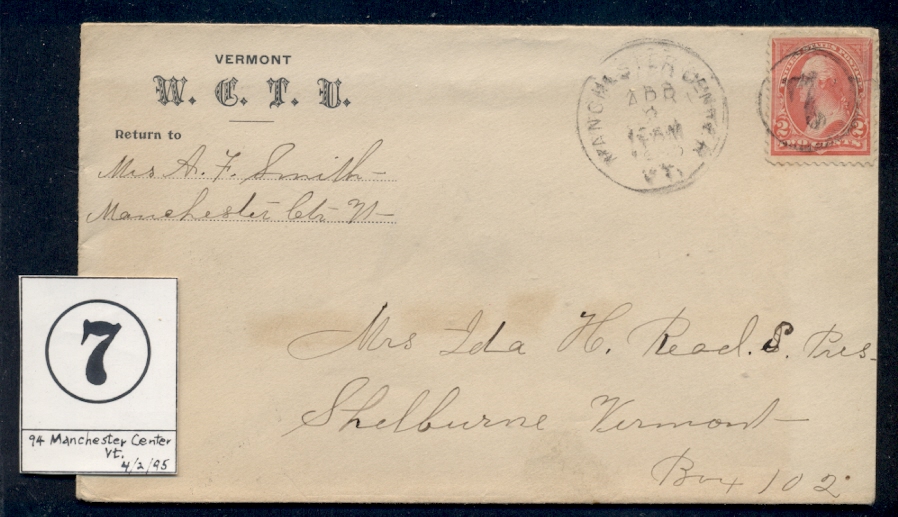 VERMONT
W. C. T. U.
Return to
Mrs A. F. Smith
Manchester Ctr Vt
MANCHESTER CENTER
APR
2
VT.
UNITED STATES POSTAGE
2 2
7
Mrs Ida H. Read. S. Pres.
Shelburne Vermont
Box 102
7
94 Manchester Center
Vt.
4/2/95